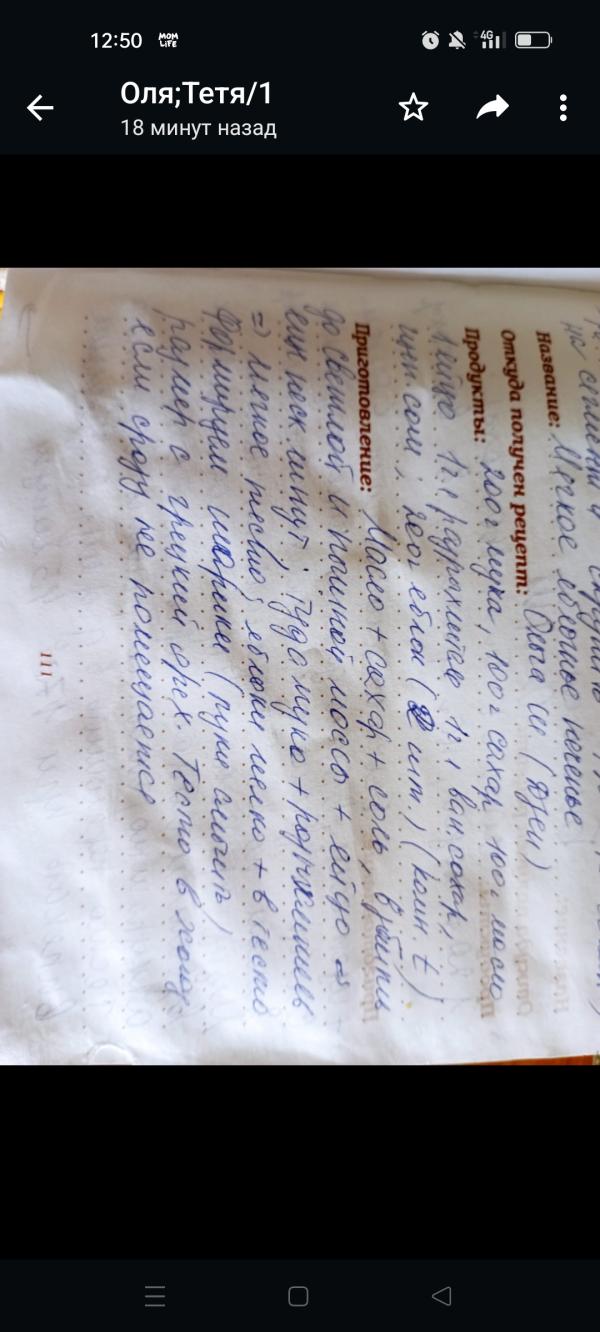 12:50 MOM LIFE 4G
Оля;Тетя/1
18 минут назад
на
Название: Мягкое яблочное печенье
Откуда получен рецепт: Ольга
Продукты: 200г мука, 100г сахар 100г масло
1 яйцо 1ч.л разрыхлитель 1ч.л ван.сахар,
щип соли, 200г яблок (2 шт.) (комн. t)
Приготовление: Масло + сахар + соль, взбить
до светлой и пышной массы + яйцо
еще неск минут. Туда мука + разрыхлитель
=> мягкое тесто, яблоки мелко + в тесто
Формируем шарики (руки смочить)
размер с грецкий орех. Тесто в холод
если сразу не помещается
111